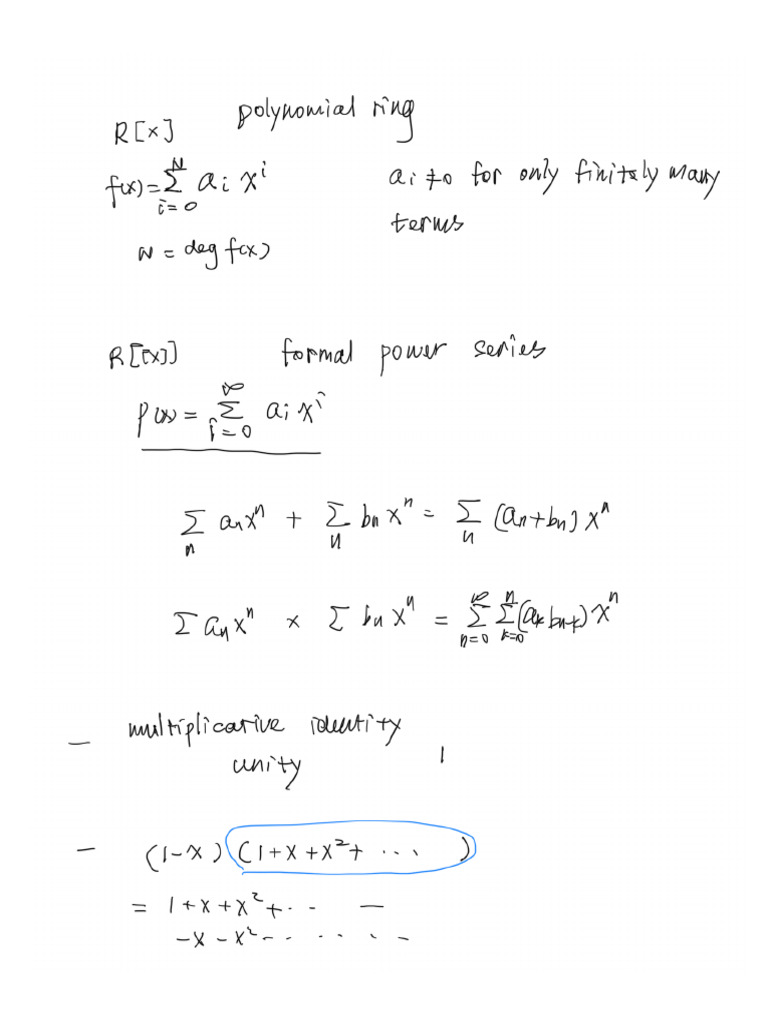 polynomial ring
R[x]
f(x) = \sum_{i=0}^{N} a_i x^i    a_i ≠ 0 for only finitely many
terms
N = deg f(x)
R[[x]]    formal power series
p(x) = \sum_{i=0}^{∞} a_i x^i
\sum_n a_n x^n + \sum_n b_n x^n = \sum_n (a_n + b_n) x^n
\sum a_n x^n × \sum b_n x^n = \sum_{n=0}^{∞} \sum_{k=0}^{n} (a_k b_{n-k}) x^n
— multiplicative identity
unity    1
— (1-x) (1+x+x^2+ ... )
= 1+x+x^2+.. —
-x-x^2-.. .. . . -